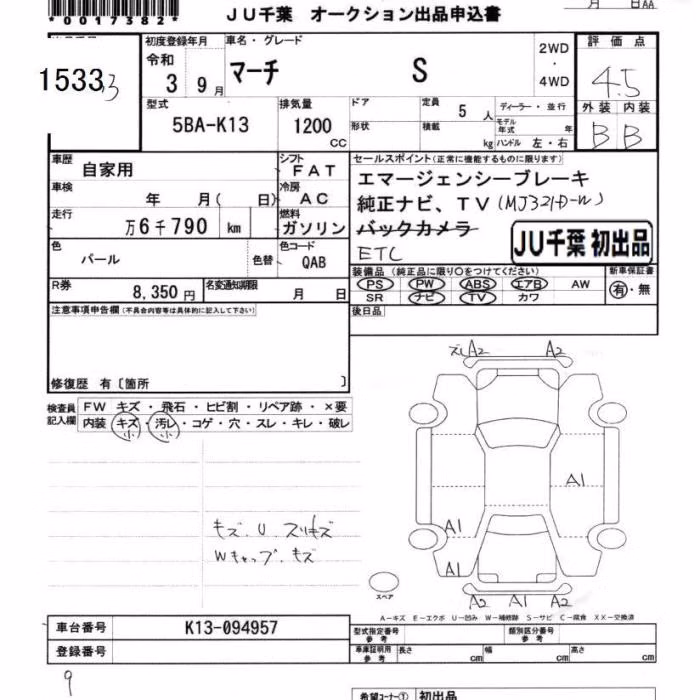 *0017382*
JU千葉 オークション出品申込書
月 日AA
15333
初度登録年月
令和
3 9月
車名・グレード
マーチ S
2WD
・
4WD
評価点
4.5
外装 内装
B B
型式
5BA-K13
排気量
1200
CC
ドア
形状
定員
5人
積載
kg
ディーラー・並行
モデル年式 年
ハンドル 左・右
車歴
自家用
シフト
FAT
車検
年 月( 日)
冷房
AC
走行
万6千790 km
燃料
ガソリン
色
パール
色替
色コード
QAB
R券
8,350円
名変通知期限
月 日
セールスポイント(正常に機能するものに限ります)
エマージェンシーブレーキ
純正ナビ、TV(MJ321D-W)
バックカメラ
ETC
JU千葉 初出品
装備品(純正品に限り○をつけてください)
PS PW ABS エアB AW
SR ナビ TV カワ
新車保証書
有・無
後日品
注意事項申告欄(不具合内容等は具体的に記入して下さい)
修復歴 有〔箇所 〕
検査員
記入欄
FW キズ・飛石・ヒビ割・リペア跡・×要
内装 キズ・汚レ・コゲ・穴・スレ・キレ・破レ
小 小
キズ. U. スリキズ
Wキャップ.キズ
ズレ A2 A2
A1
A1
A1
A2 A1 A2
スペア
A-キズ E-エクボ U-凹み W-補修跡 S-サビ C-腐食 XX-交換済
車台番号
K13-094957
登録番号
型式指定番号
参考
類別区分番号
参考
車庫証明用
参考
長さ cm 幅 cm 高さ cm
9
希望コーナー① 初出品